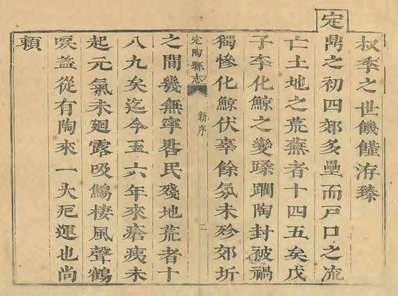 叔季之世饑饉洊臻
定鼎之初四郊多壘而戶口之流
亡土地之荒蕪者十四五矣戊
子李化鯨之變蹂躪陶封被禍
獨慘化鯨伏辜餘氛未殄郊圻
定陶縣志 新序 二
之間幾無寧晷民殘地荒者十
八九矣迄今五六年來瘡痍未
起元氣未廻露吸鷦棲風聲鶴
唳蓋從有陶來一大厄運也尚
賴